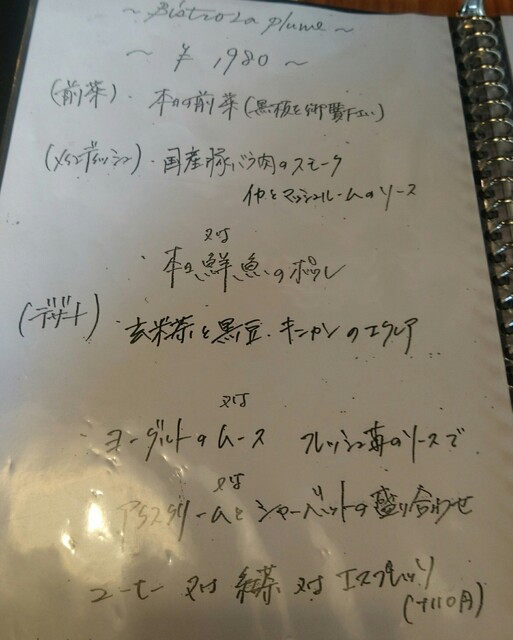 ~ Bistro La plume ~
~ ¥ 1980 ~
(前菜)・本日の前菜(黒板を御覧下さい)
(メインディッシュ)・国産豚バラ肉のスモーク
とマッシュルームのソース
又は
本日鮮魚のポワレ
(デザート) 玄米茶と黒豆・キンカンのエクレア
又は
ヨーグルトのムース フレッシュ苺のソースで
又は
アイスクリームとシャーベットの盛り合わせ
コーヒー 又は 紅茶 又は エスプレッソ
(+110円)